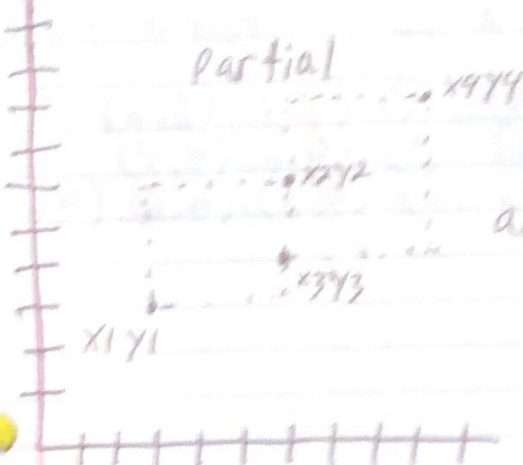 Partial
x4y4
x2y2
a.
x3y3
x1 y1